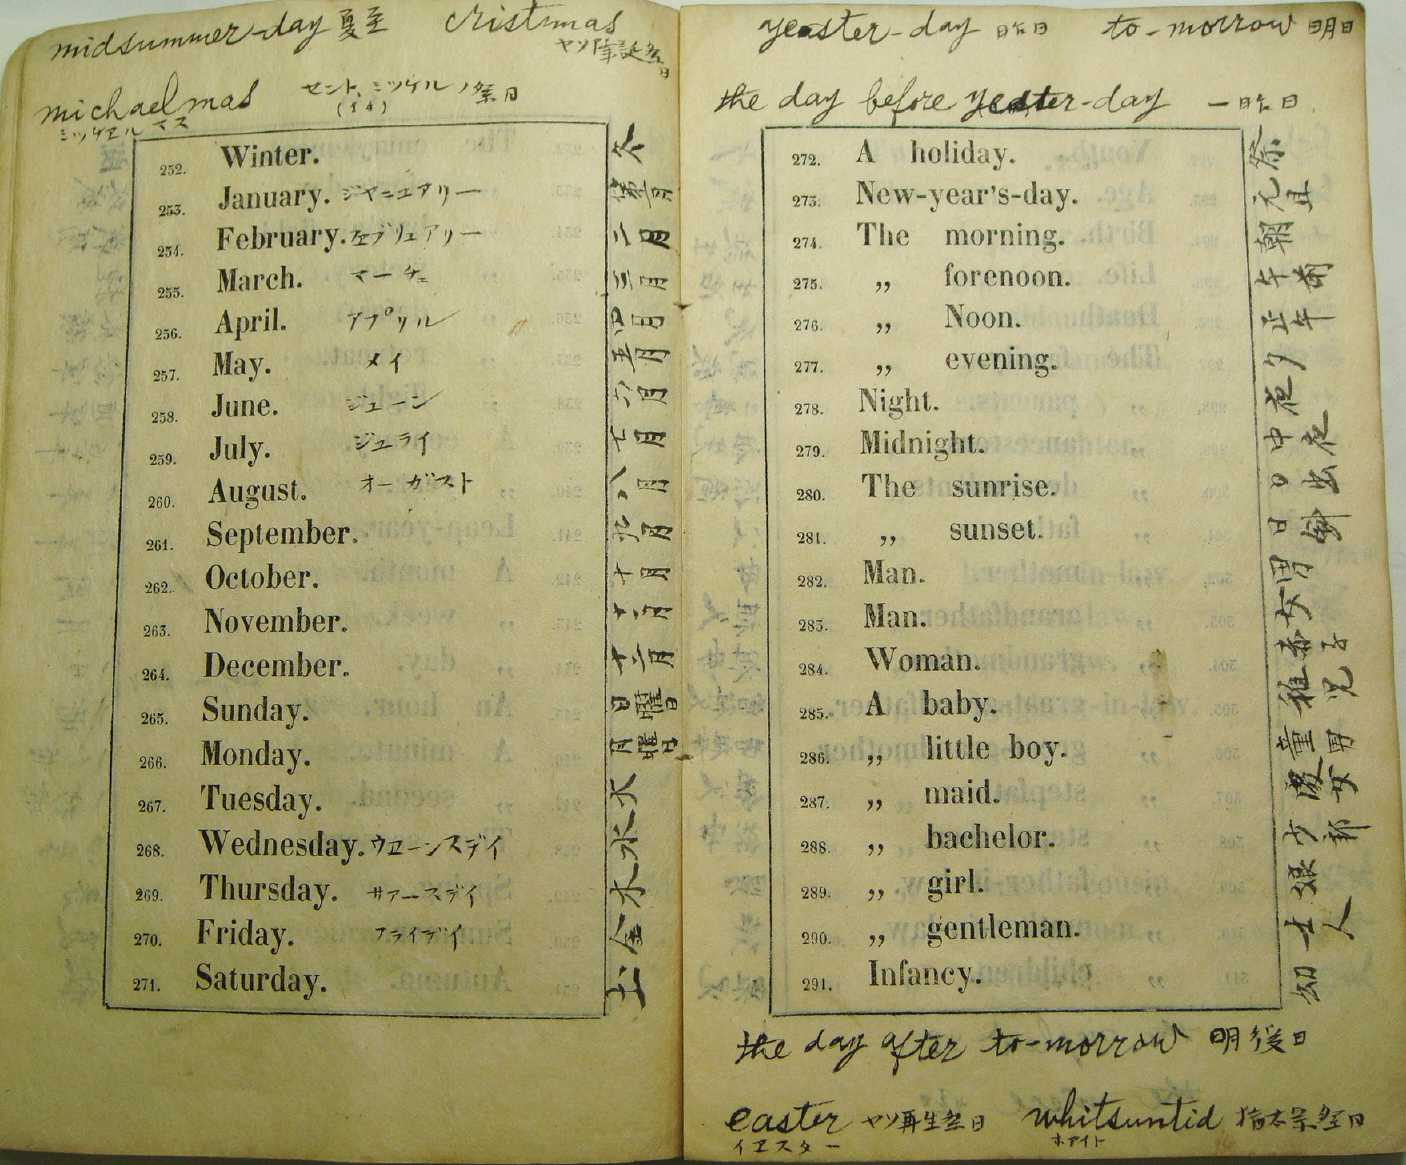 midsummer-day 夏至 cristmas
ヤソ降誕祭日
michaelmas セント、ミッケルノ祭日
ミッケエルマス
252. Winter. 冬
253. January. ジヤニュアリー 月
254. February. フェブリュアリー 二月
255. March. マーチェ 三月
256. April. アプリル 四月
257. May. メイ 五月
258. June. ジューン 六月
259. July. ジュライ 七月
260. August. オーガスト 八月
261. September. 九月
262. October. 十月
263. November. 十一月
264. December. 十二月
265. Sunday. 日曜日
266. Monday. 月曜日
267. Tuesday. 火
268. Wednesday. ウヱーンスデイ 水
269. Thursday. サアースデイ 木
270. Friday. フライデイ 金
271. Saturday. 土
yeaster-day 昨日 to-morrow 明日
the day before yeaster-day 一昨日
272. A holiday. 祭
273. New-year's-day. 元旦
274. The morning. 朝
275. „ forenoon. 午前
276. „ Noon. 正午
277. „ evening. 夕
278. Night. 夜
279. Midnight. 中夜
280. The sunrise. 日出
281. „ sunset. 日
282. Man. 男
283. Man.
284. Woman. 女
285. A baby. 赤子
286. „ little boy. 稚児
287. „ maid.
288. „ bachelor. 童男
289. „ girl. 女
290. „ gentleman. 少郎
291. Infancy. 娘
士人
幼
the day after to-morrow 明後日
easter ヤソ再生祭日 whitsuntid
イヱスター ホアイト